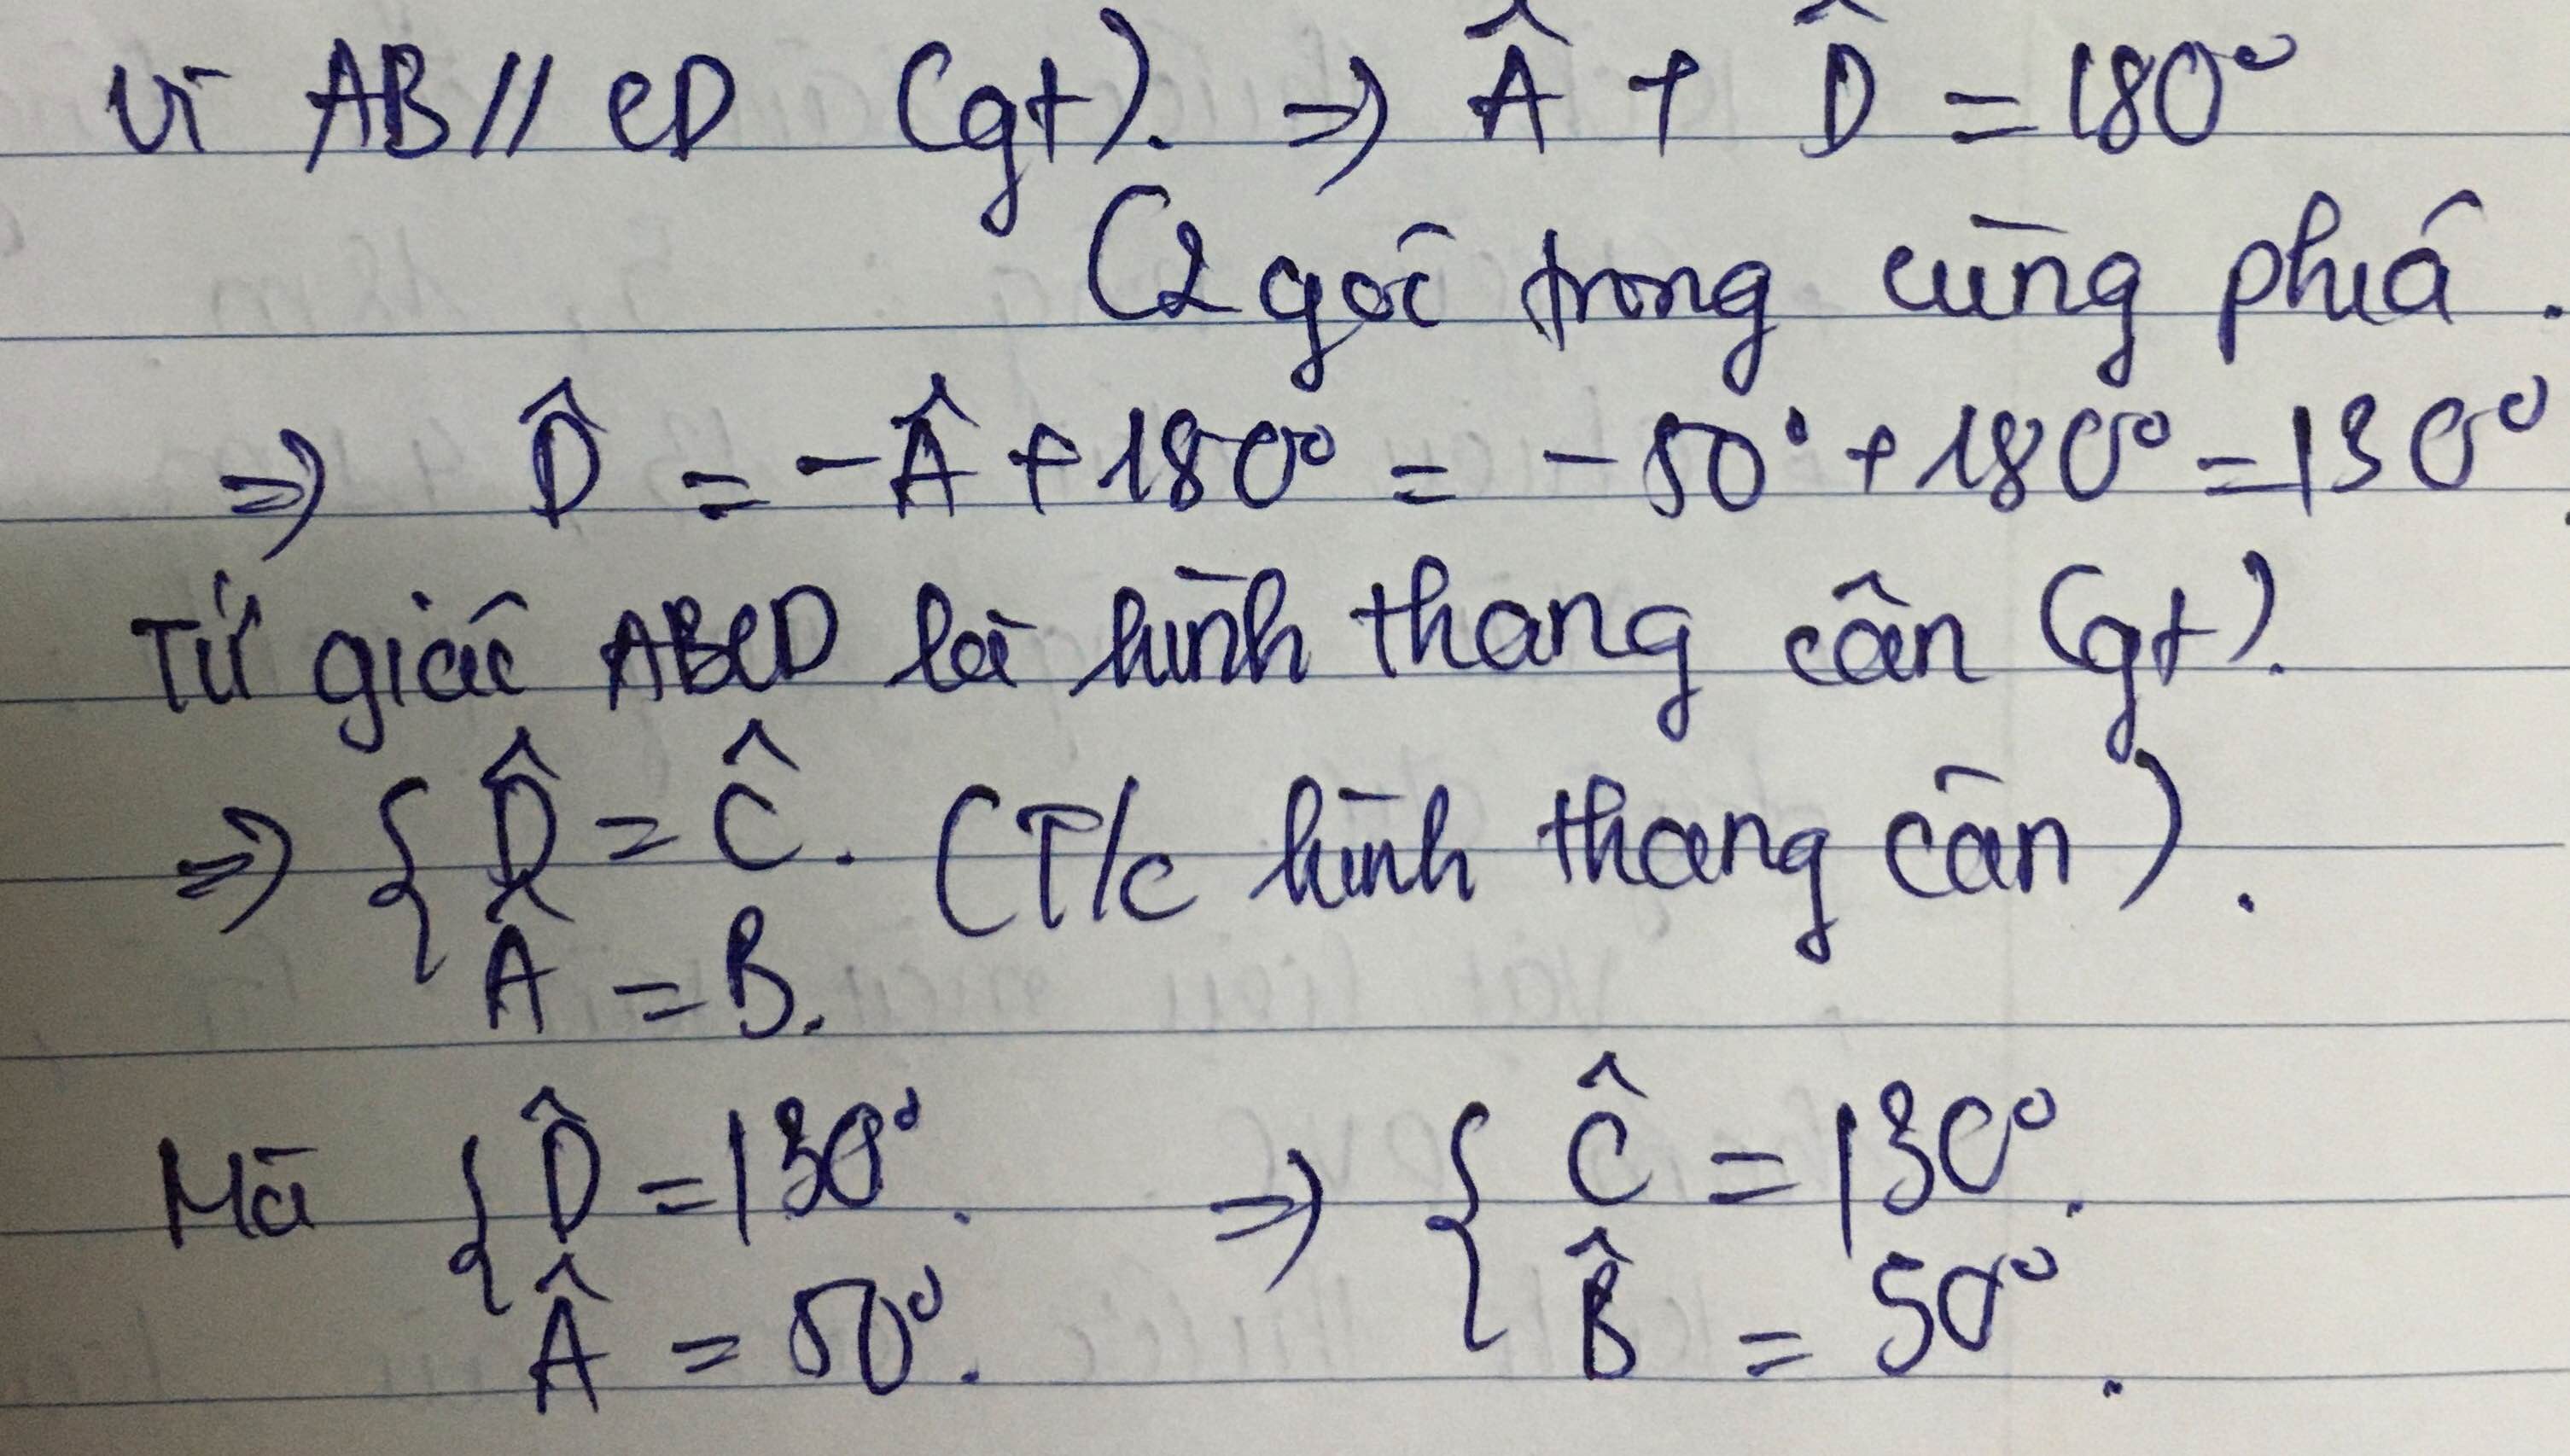 Vì AB // CD (gt). => Â + D̂ = 180°
(2 góc trong cùng phía.
=> D̂ = -Â + 180° = -50° + 180° = 130°.
Tứ giác ABCD là hình thang cân (gt).
=> { D̂ = Ĉ. (T/c hình thang cân).
Â = B.
Mà { D̂ = 130°. => { Ĉ = 130°.
Â = 50°. B̂ = 50°.